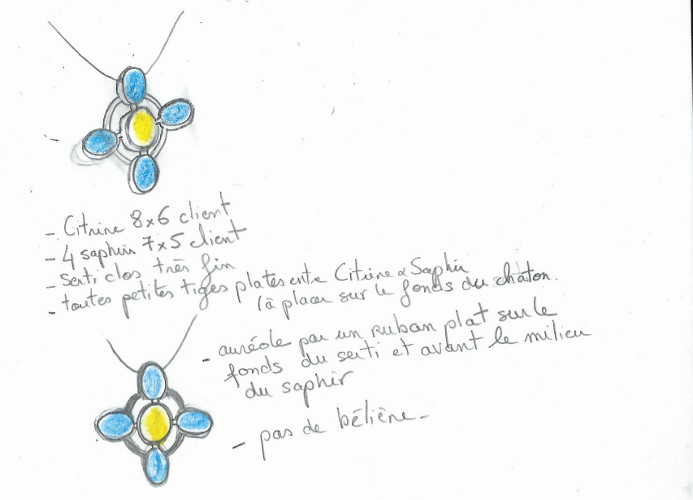 - Citrine 8x6 client
- 4 saphir 7x5 client
- Serti clos très fin
- toutes petites tiges plates entre Citrine & Saphir
(à placer sur le fonds du chaton.
- auréole par un ruban plat sur le
fonds du serti et avant le milieu
du saphir
- pas de bélière -